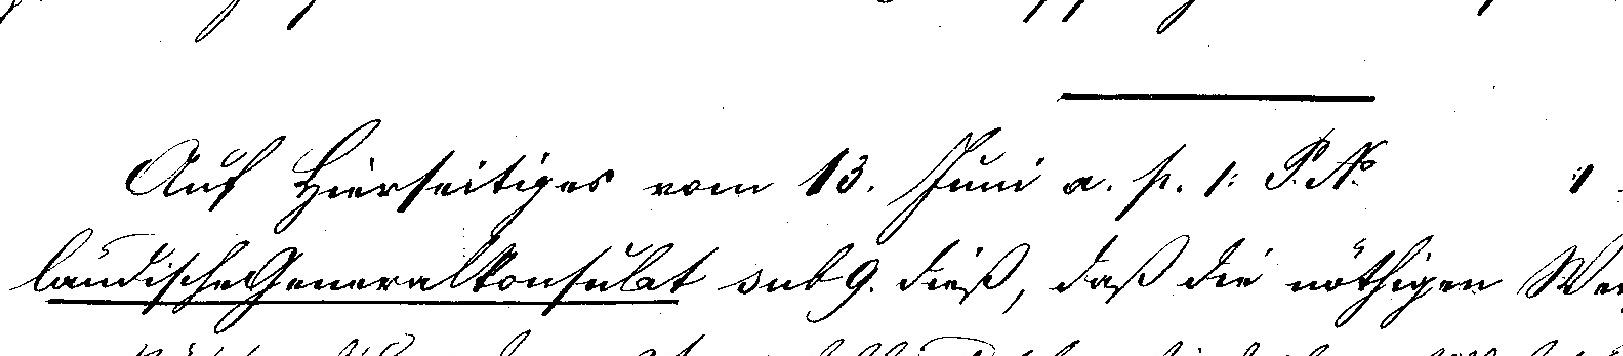 Auf Hierseitiges vom 13. Juni a. p. /: P. No :/
ländische Generalkonsulat sub 9. dieß, daß die nöthigen